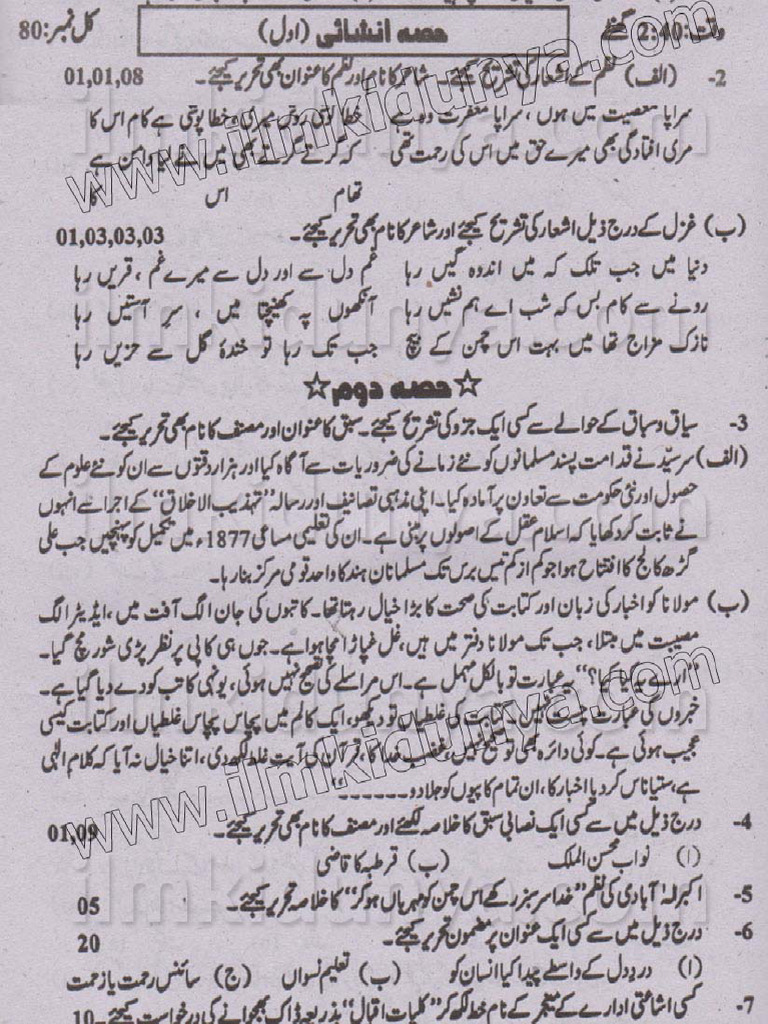 وقت: 2:40 گھنٹے حصہ انشائی (اول) کل نمبر: 80
2- (الف) نظم کے اشعار کی تشریح کیجئے۔ شاعر کا نام اور نظم کا عنوان بھی تحریر کیجئے۔ 01,01,08
سراپا معصیت میں ہوں ، سراپا مغفرت وہ ہے خطا پوشی روش میری ، خطا پوشی ہے کام اس کا
مری افتادگی بھی میرے حق میں اس کی رحمت تھی کہ گرتے گرتے بھی میں نے لیا دامن ہے
تھام اس کا
(ب) غزل کے درج ذیل اشعار کی تشریح کیجئے اور شاعر کا نام بھی تحریر کیجئے۔ 01,03,03,03
دنیا میں جب تلک کہ میں اندوہ گیں رہا غم دل سے اور دل سے میرے غم ، قریں رہا
رونے سے کام بس کہ شب اے ہم نشیں رہا آنکھوں پہ کھینچتا میں ، سرِ آستیں رہا
نازک مزاج تھا میں بہت اس چمن کے بیچ جب تک رہا تو خندۂ گل سے حزیں رہا
☆حصہ دوم☆
3- سیاق و سباق کے حوالے سے کسی ایک جزو کی تشریح کیجئے۔ سبق کا عنوان اور مصنف کا نام بھی تحریر کیجئے۔
(الف) سرسیّد نے قدامت پسند مسلمانوں کو نئے زمانے کی ضروریات سے آگاہ کیا اور ہزار دقتوں سے ان کو نئے علوم کے
حصول اور نئی حکومت سے تعاون پر آمادہ کیا۔ اپنی مذہبی تصانیف اور رسالہ "تہذیب الاخلاق" کے اجرا سے انہوں
نے ثابت کر دکھایا کہ اسلام عقل کے اصولوں پر مبنی ہے۔ ان کی تعلیمی مساعی 1877ء میں تکمیل کو پہنچیں جب علی
گڑھ کالج کا افتتاح ہوا جو کم از کم تیس برس تک مسلمانان ہند کا واحد قومی مرکز بنا رہا۔
(ب) مولانا کو اخبار کی زبان اور کتابت کی صحت کا بڑا خیال رہتا تھا۔ کاتبوں کی جان الگ آفت میں ، ایڈیٹر الگ
مصیبت میں مبتلا ، جب تک مولانا دفتر میں ہیں ، غل غپاڑا مچا ہوا ہے۔ جوں ہی کاپی پر نظر پڑی شور مچ گیا۔
"ارے یہ کیا کیا؟" یہ عبارت تو بالکل مہمل ہے۔ اس مراسلے کی تصحیح نہیں ہوئی ، یونہی کاتب کو دے دیا گیا ہے۔
خبروں کی عبارت چست نہیں۔ کتابت کی غلطیاں تو دیکھو ، ایک کالم میں پچاس پچاس غلطیاں اور کتابت کیسی
عجیب ہوئی ہے۔ کوئی دائرہ بھی تو صحیح نہیں ، غضب خدا کا ، قرآن کی آیت غلط لکھ دی ، اتنا خیال نہ آیا کہ کلام الٰہی
ہے ، ستیاناس کر دیا اخبار کا ، ان تمام کاپیوں کو جلا دو۔۔۔۔۔۔"
4- درج ذیل میں سے کسی ایک نصابی سبق کا خلاصہ لکھئے اور مصنف کا نام بھی تحریر کیجئے۔ 01,09
(۱) نواب محسن الملک (ب) قرطبہ کا قاضی
5- اکبر الہٰ آبادی کی نظم "خدا سرسبز رکھے اس چمن کو مہرباں ہو کر" کا خلاصہ تحریر کیجئے۔ 05
6- درج ذیل میں سے کسی ایک عنوان پر مضمون تحریر کیجئے۔ 20
(۱) درد دل کے واسطے پیدا کیا انسان کو (ب) تعلیم نسواں (ج) سائنس رحمت یا زحمت
7- کسی اشاعتی ادارے کے منیجر کے نام خط لکھ کر "کلیات اقبال" بذریعہ ڈاک بھجوانے کی درخواست کیجئے۔ 10
www.ilmkidunya.com
ilmkidunya.com
ilmkidunya.com
ilmkidunya.com
www.ilmkidunya.com
ilmkidunya.com